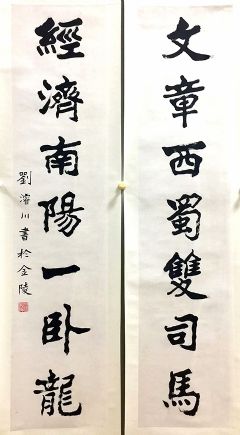 文章西蜀雙司馬
經濟南陽一卧龍
劉濬川書於金陵